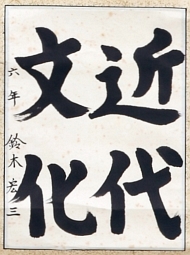 近代
文化
六年 鈴木宏三